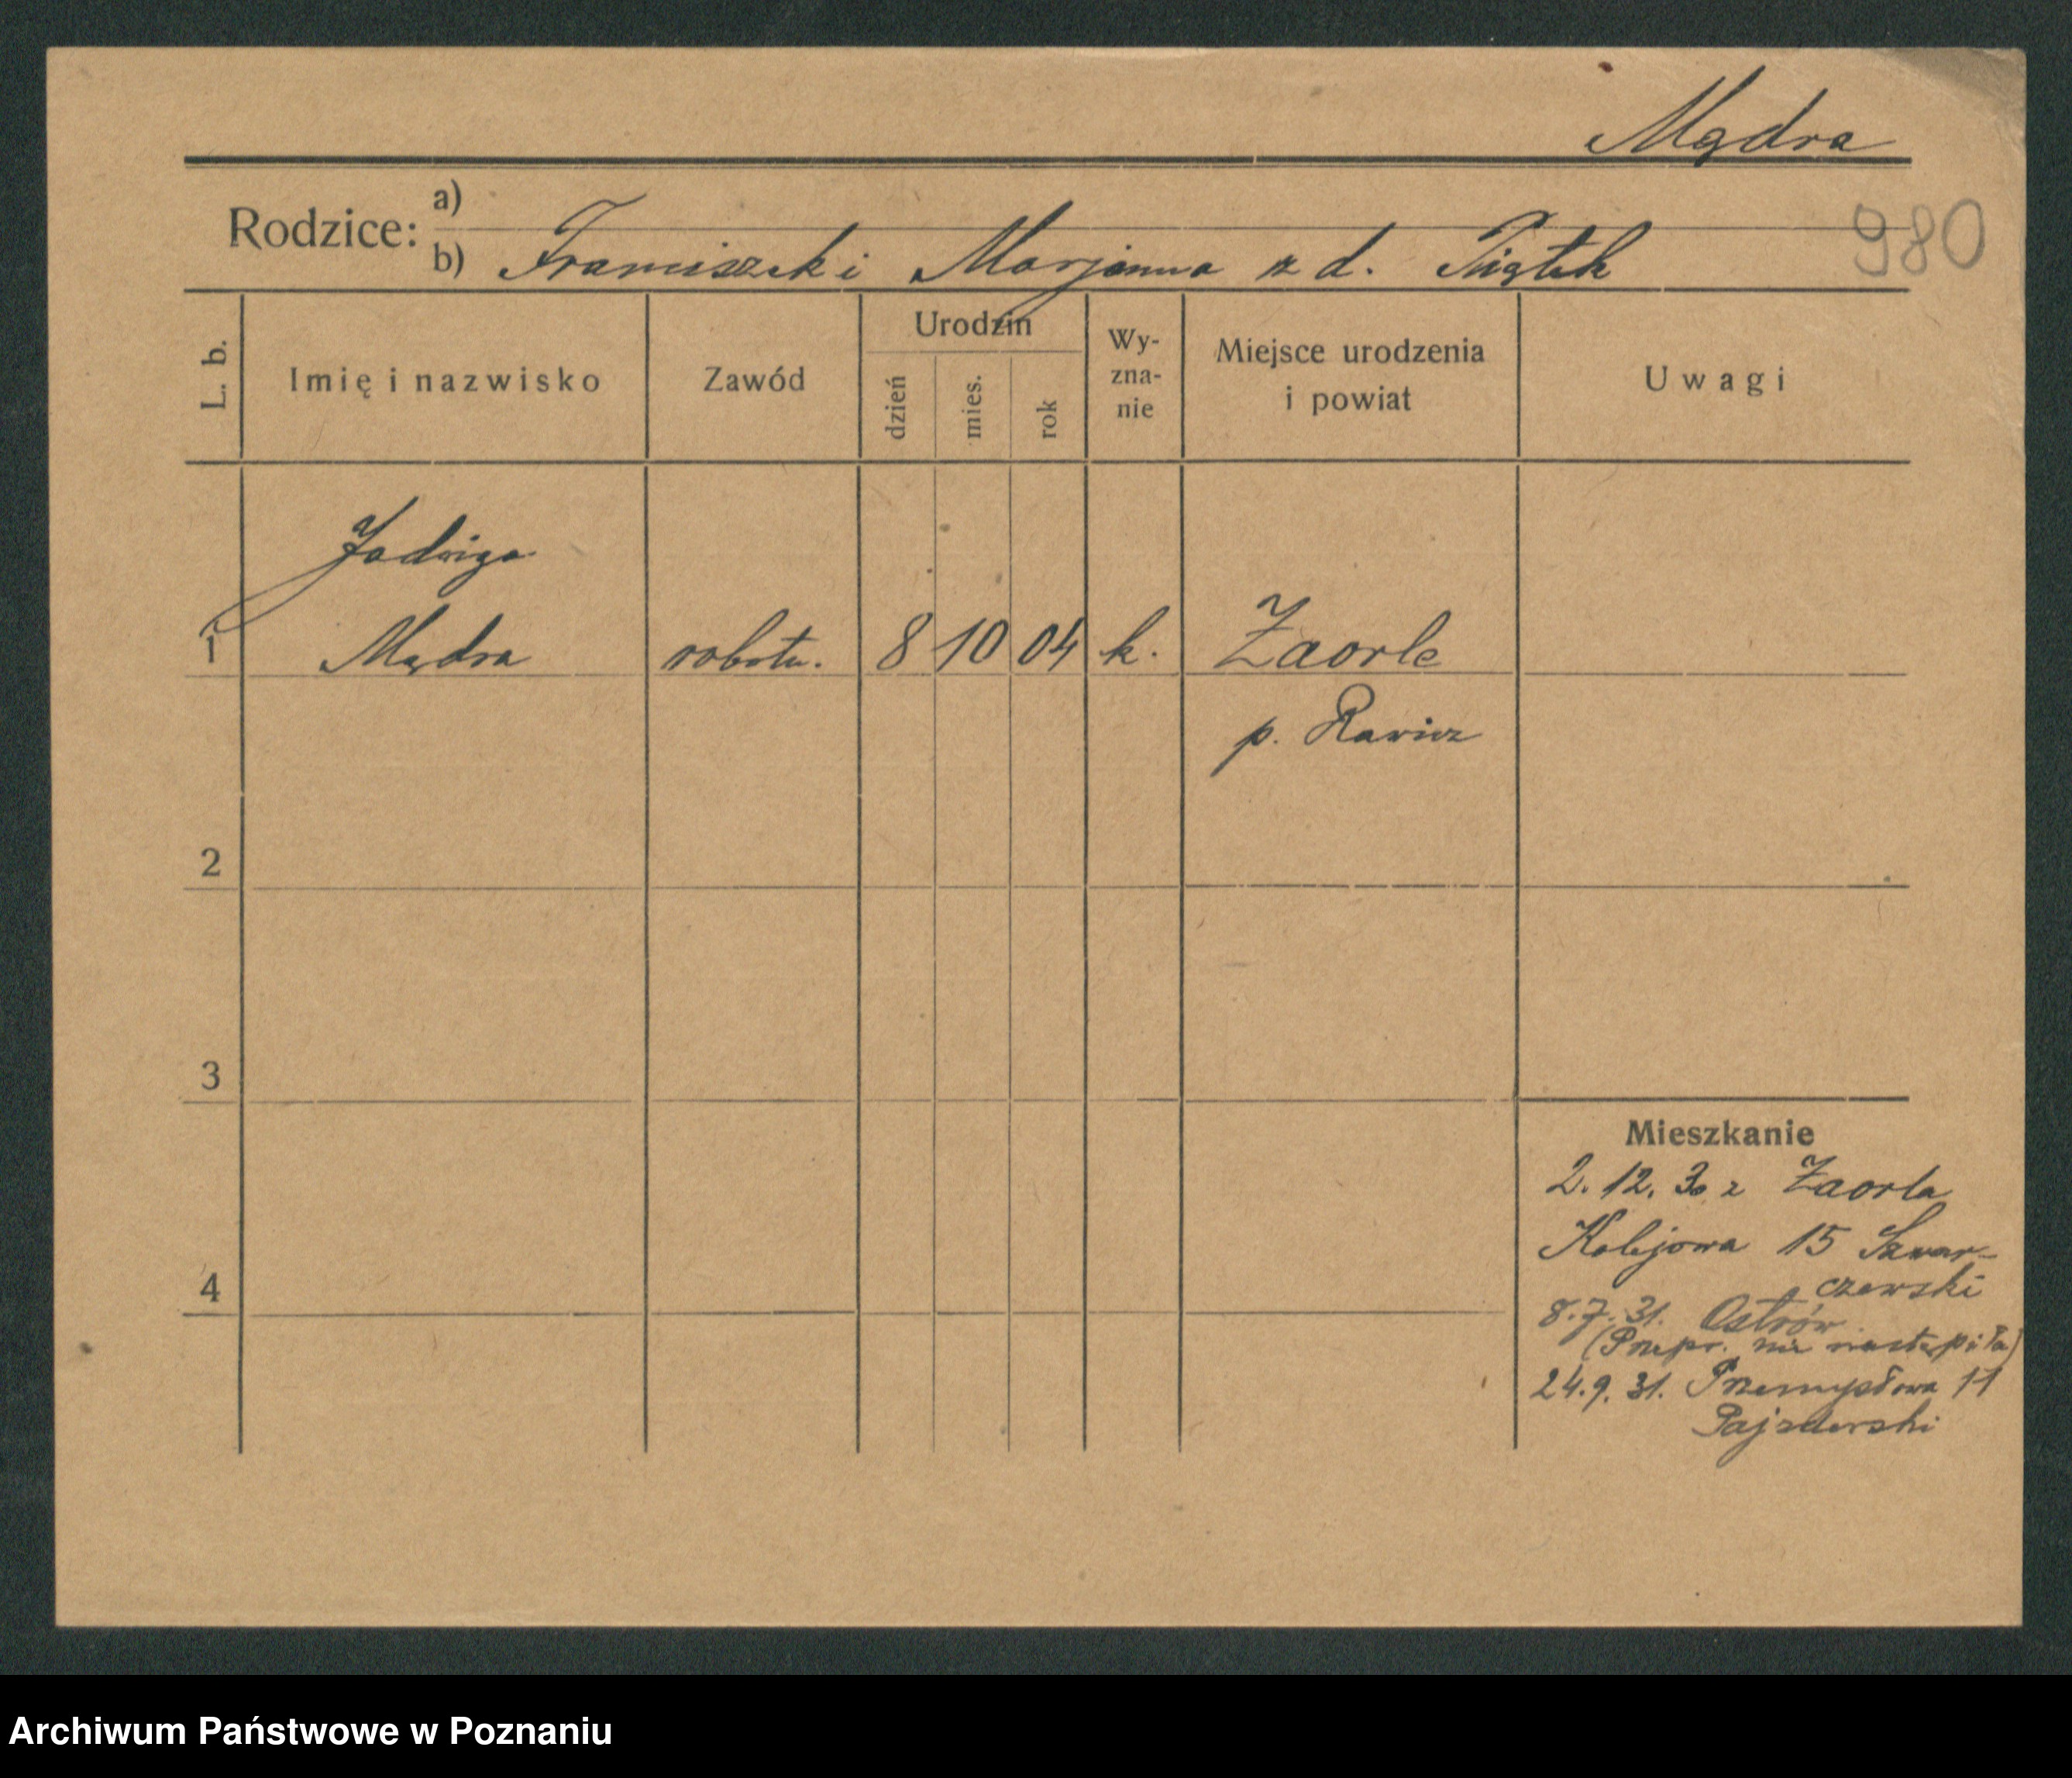 Mądra
Rodzice: a)
b) Franciszek i Marjanna z d. Piątek
980
L. b.
Imię i nazwisko
Zawód
Urodzin
dzień
mies.
rok
Wy-
zna-
nie
Miejsce urodzenia
i powiat
Uwagi
Jadwiga
1 Mądra robotn. 8 10 04 k. Zaorle
p. Rawicz
2
3
4
Mieszkanie
2. 12. 30 z Zaorla
Kolejowa 15 Skwar-
czewski
8. 7. 31. Ostrów
(Przepr. nie nastąpiła)
24. 9. 31. Przemysłowa 11
Pajzderski
Archiwum Państwowe w Poznaniu